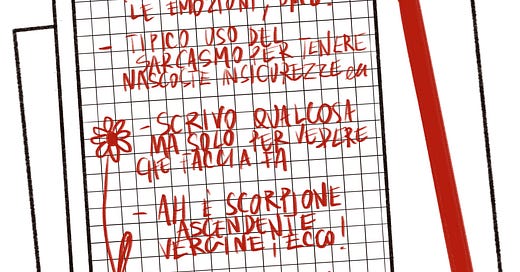 LE EMOZIONI,
- TIPICO USO DEL
SARCASMO PER TENERE
NASCOSTE INSICUREZZE
- SCRIVO QUALCOSA
MA SOLO PER VEDERE
CHE FACCIA FA
- AH È SCORPIONE
ASCENDENTE
VERGINE, ECCO!